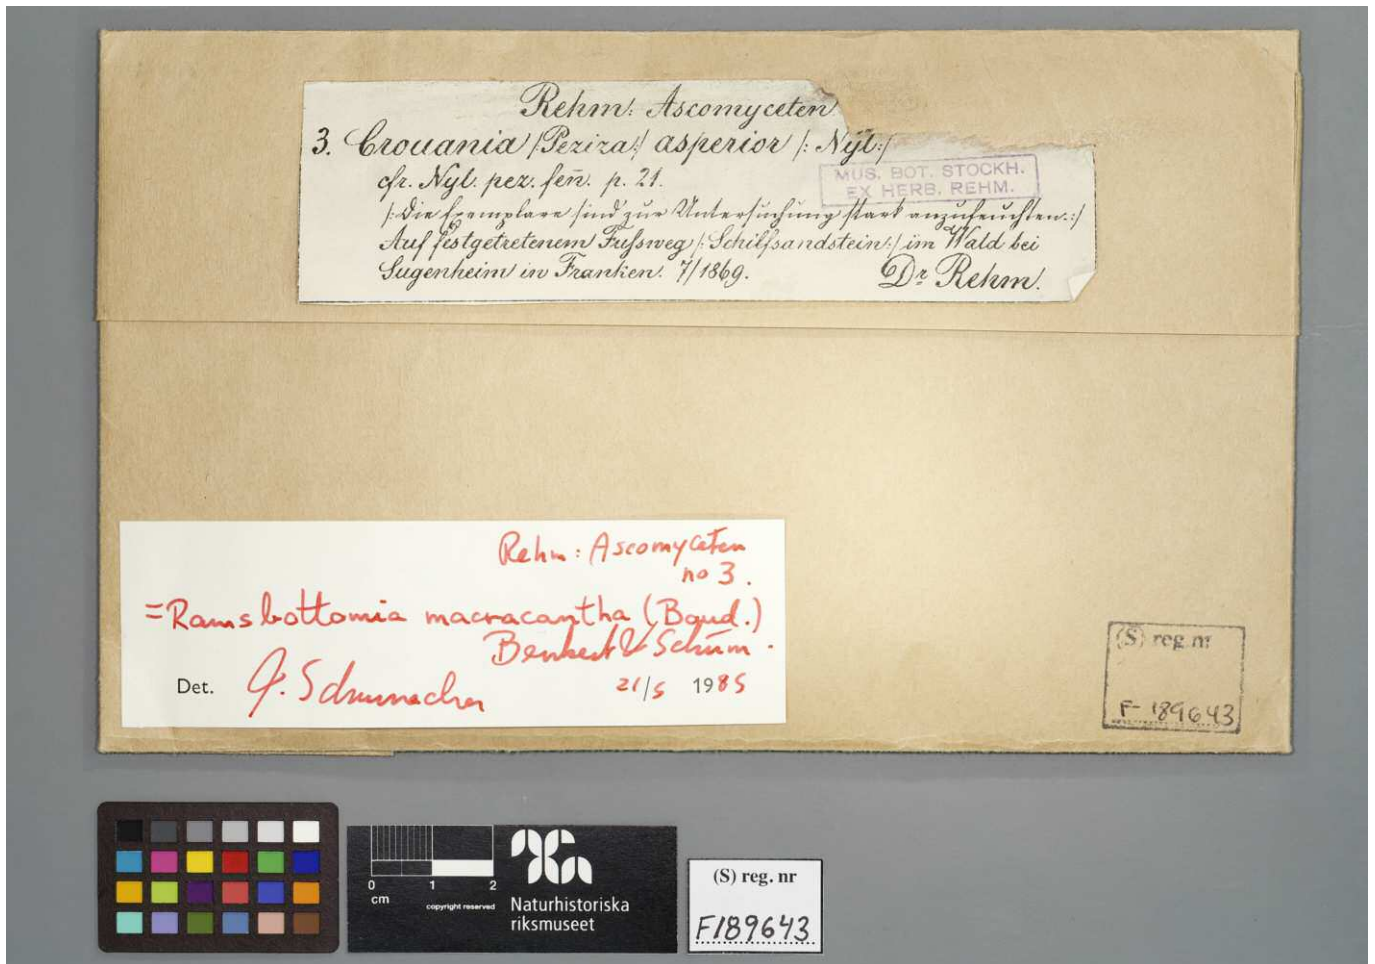 Rehm: Ascomyceten
3. Crouania /:Peziza:/ asperior /: Nyl:/
cfr. Nyl. pez. fen̄. p. 21.
MUS. BOT. STOCKH.
EX HERB. REHM.
/: Die Exemplare sind zur Untersuchung stark anzufeuchten. :/
Auf festgetretenem Fußweg /: Schilfsandstein :/ im Wald bei
Sugenheim in Franken. 7/1869. Dr. Rehm.
Rehm: Ascomyceten
no 3.
= Ramsbottomia macracantha (Boud.)
Benkert & Schum.
Det. T. Schumacher 21/5 1985
(S) reg. nr
F- 189643
0 1 2
cm
copyright reserved
Naturhistoriska
riksmuseet
(S) reg. nr
F189643